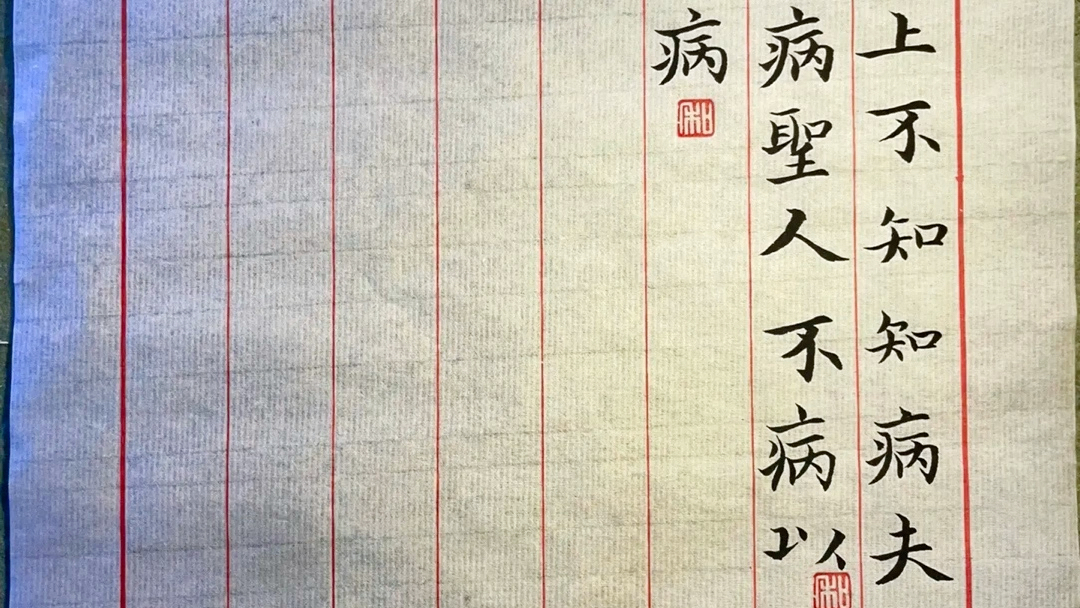 上不知知病夫
病聖人不病以
病